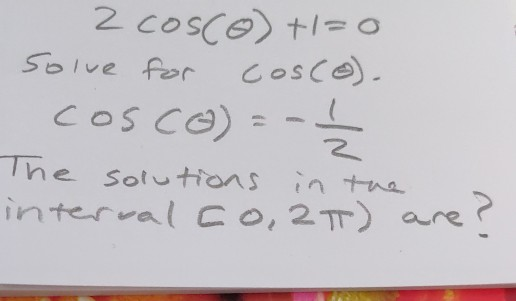 2 cos(θ) +1=0
Solve for cos(θ).
cos(θ) = - 1/2
The solutions in the
interval [0, 2π) are?